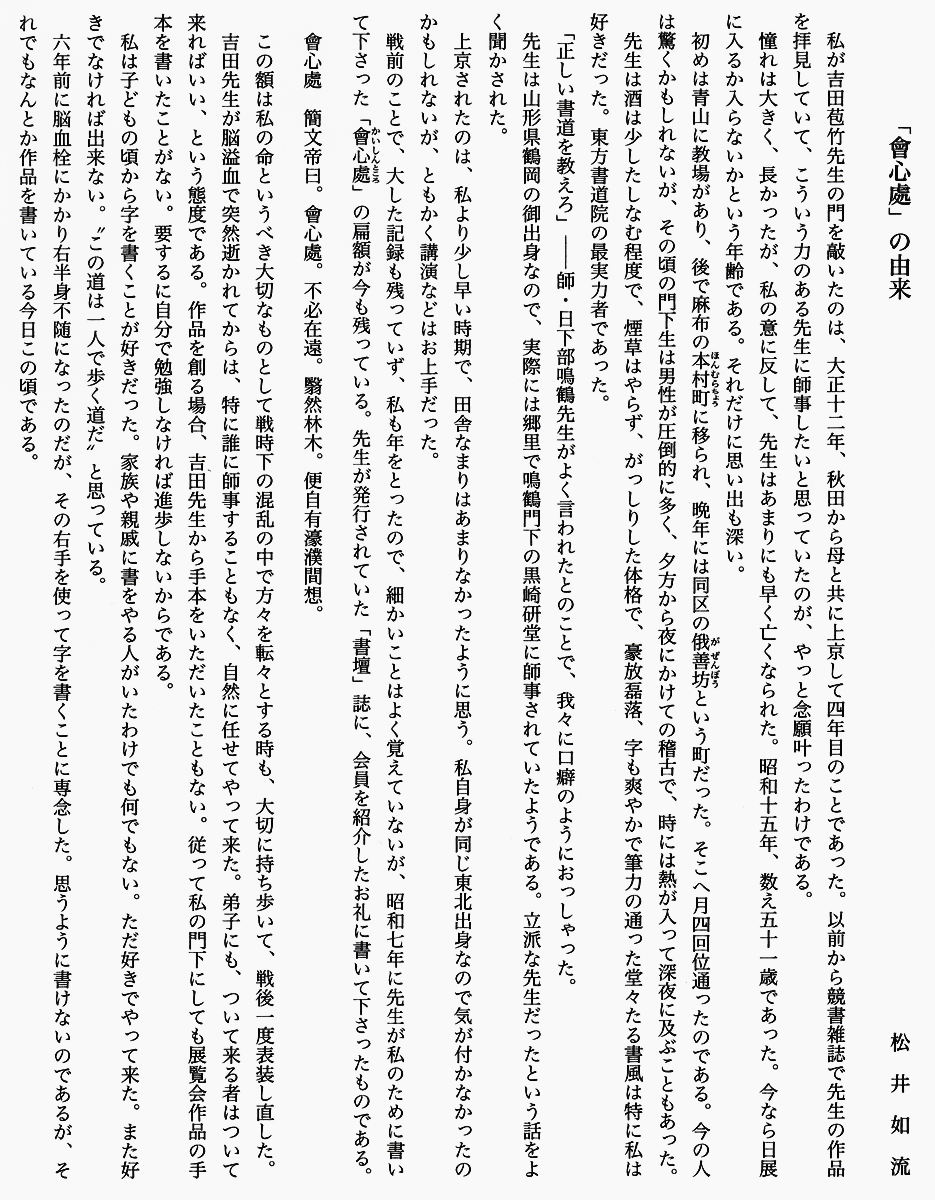 「會心處」の由来
松井如流
私が吉田苞竹先生の門を敲いたのは、大正十二年、秋田から母と共に上京して四年目のことであった。以前から競書雑誌で先生の作品
を拝見していて、こういう力のある先生に師事したいと思っていたのが、やっと念願叶ったわけである。
憧れは大きく、長かったが、私の意に反して、先生はあまりにも早く亡くなられた。昭和十五年、数え五十一歳であった。今なら日展
に入るか入らないかという年齢である。それだけに思い出も深い。
初めは青山に教場があり、後で麻布の本村町に移られ、晩年には同区の俄善坊という町だった。そこへ月四回位通ったのである。今の人
は驚くかもしれないが、その頃の門下生は男性が圧倒的に多く、夕方から夜にかけての稽古で、時には熱が入って深夜に及ぶこともあった。
先生は酒は少したしなむ程度で、煙草はやらず、がっしりした体格で、豪放磊落、字も爽やかで筆力の通った堂々たる書風は特に私は
好きだった。東方書道院の最実力者であった。
「正しい書道を教えろ」――師・日下部鳴鶴先生がよく言われたとのことで、我々に口癖のようにおっしゃった。
先生は山形県鶴岡の御出身なので、実際には郷里で鳴鶴門下の黒崎研堂に師事されていたようである。立派な先生だったという話をよ
く聞かされた。
上京されたのは、私より少し早い時期で、田舎なまりはあまりなかったように思う。私自身が同じ東北出身なので気が付かなかったの
かもしれないが、ともかく講演などはお上手だった。
戦前のことで、大した記録も残っていず、私も年をとったので、細かいことはよく覚えていないが、昭和七年に先生が私のために書い
て下さった「會心處」の扁額が今も残っている。先生が発行されていた「書壇」誌に、会員を紹介したお礼に書いて下さったものである。
會心處　簡文帝曰。會心處。不必在遠。翳然林木。便自有濠濮間想。
この額は私の命というべき大切なものとして戦時下の混乱の中で方々を転々とする時も、大切に持ち歩いて、戦後一度表装し直した。
吉田先生が脳溢血で突然逝かれてからは、特に誰に師事することもなく、自然に任せてやって来た。弟子にも、ついて来る者はついて
来ればいい、という態度である。作品を創る場合、吉田先生から手本をいただいたこともない。従って私の門下にしても展覧会作品の手
本を書いたことがない。要するに自分で勉強しなければ進歩しないからである。
私は子どもの頃から字を書くことが好きだった。家族や親戚に書をやる人がいたわけでも何でもない。ただ好きでやって来た。また好
きでなければ出来ない。〝この道は一人で歩く道だ〟と思っている。
六年前に脳血栓にかかり右半身不随になったのだが、その右手を使って字を書くことに専念した。思うように書けないのであるが、そ
れでもなんとか作品を書いている今日この頃である。